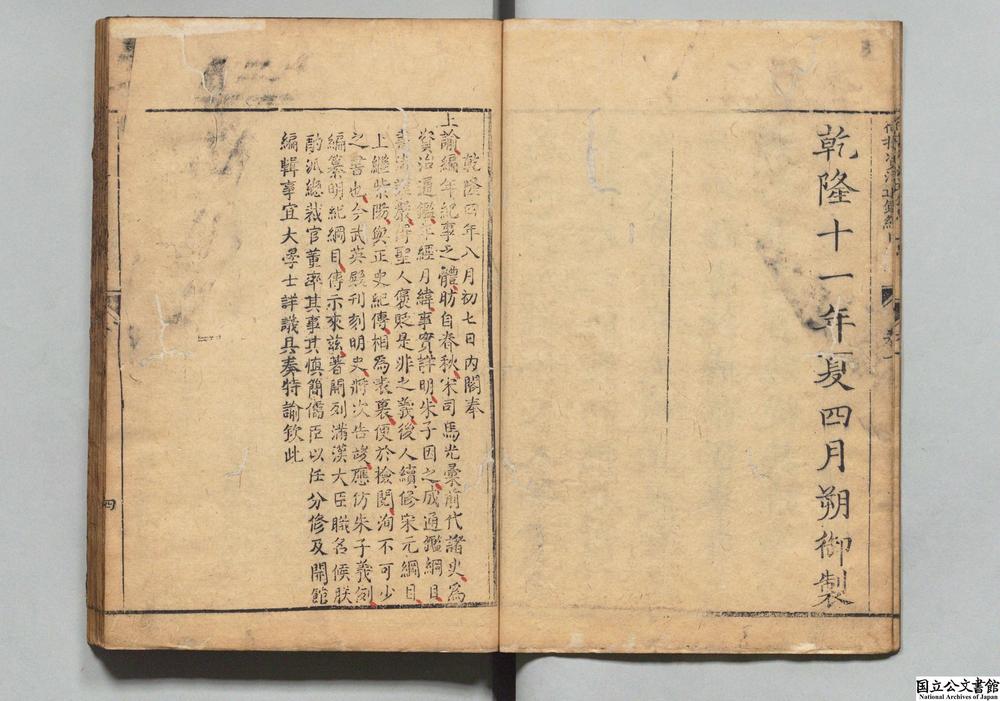 乾隆十一年夏四月朔御製
乾隆四年八月初七日內閣奉
上諭編年紀事之體昉自春秋宋司馬光彙前代諸史為
資治通鑑年經月緯事實詳明朱子因之成通鑑綱目
書法謹嚴得聖人褒貶是非之義後人續修宋元綱目
上繼紫陽與正史紀傳相為表裏便於檢閱洵不可少
之書也今武英殿刊刻明史將次告竣應仿朱子義例
編纂明紀綱目傳示來茲著開列滿漢大臣職名候朕
酌派總裁官董率其事其慎簡儒臣以任分修及開館
編輯事宜大學士詳議具奏特諭欽此
四
国立公文書館
National Archives of Japan